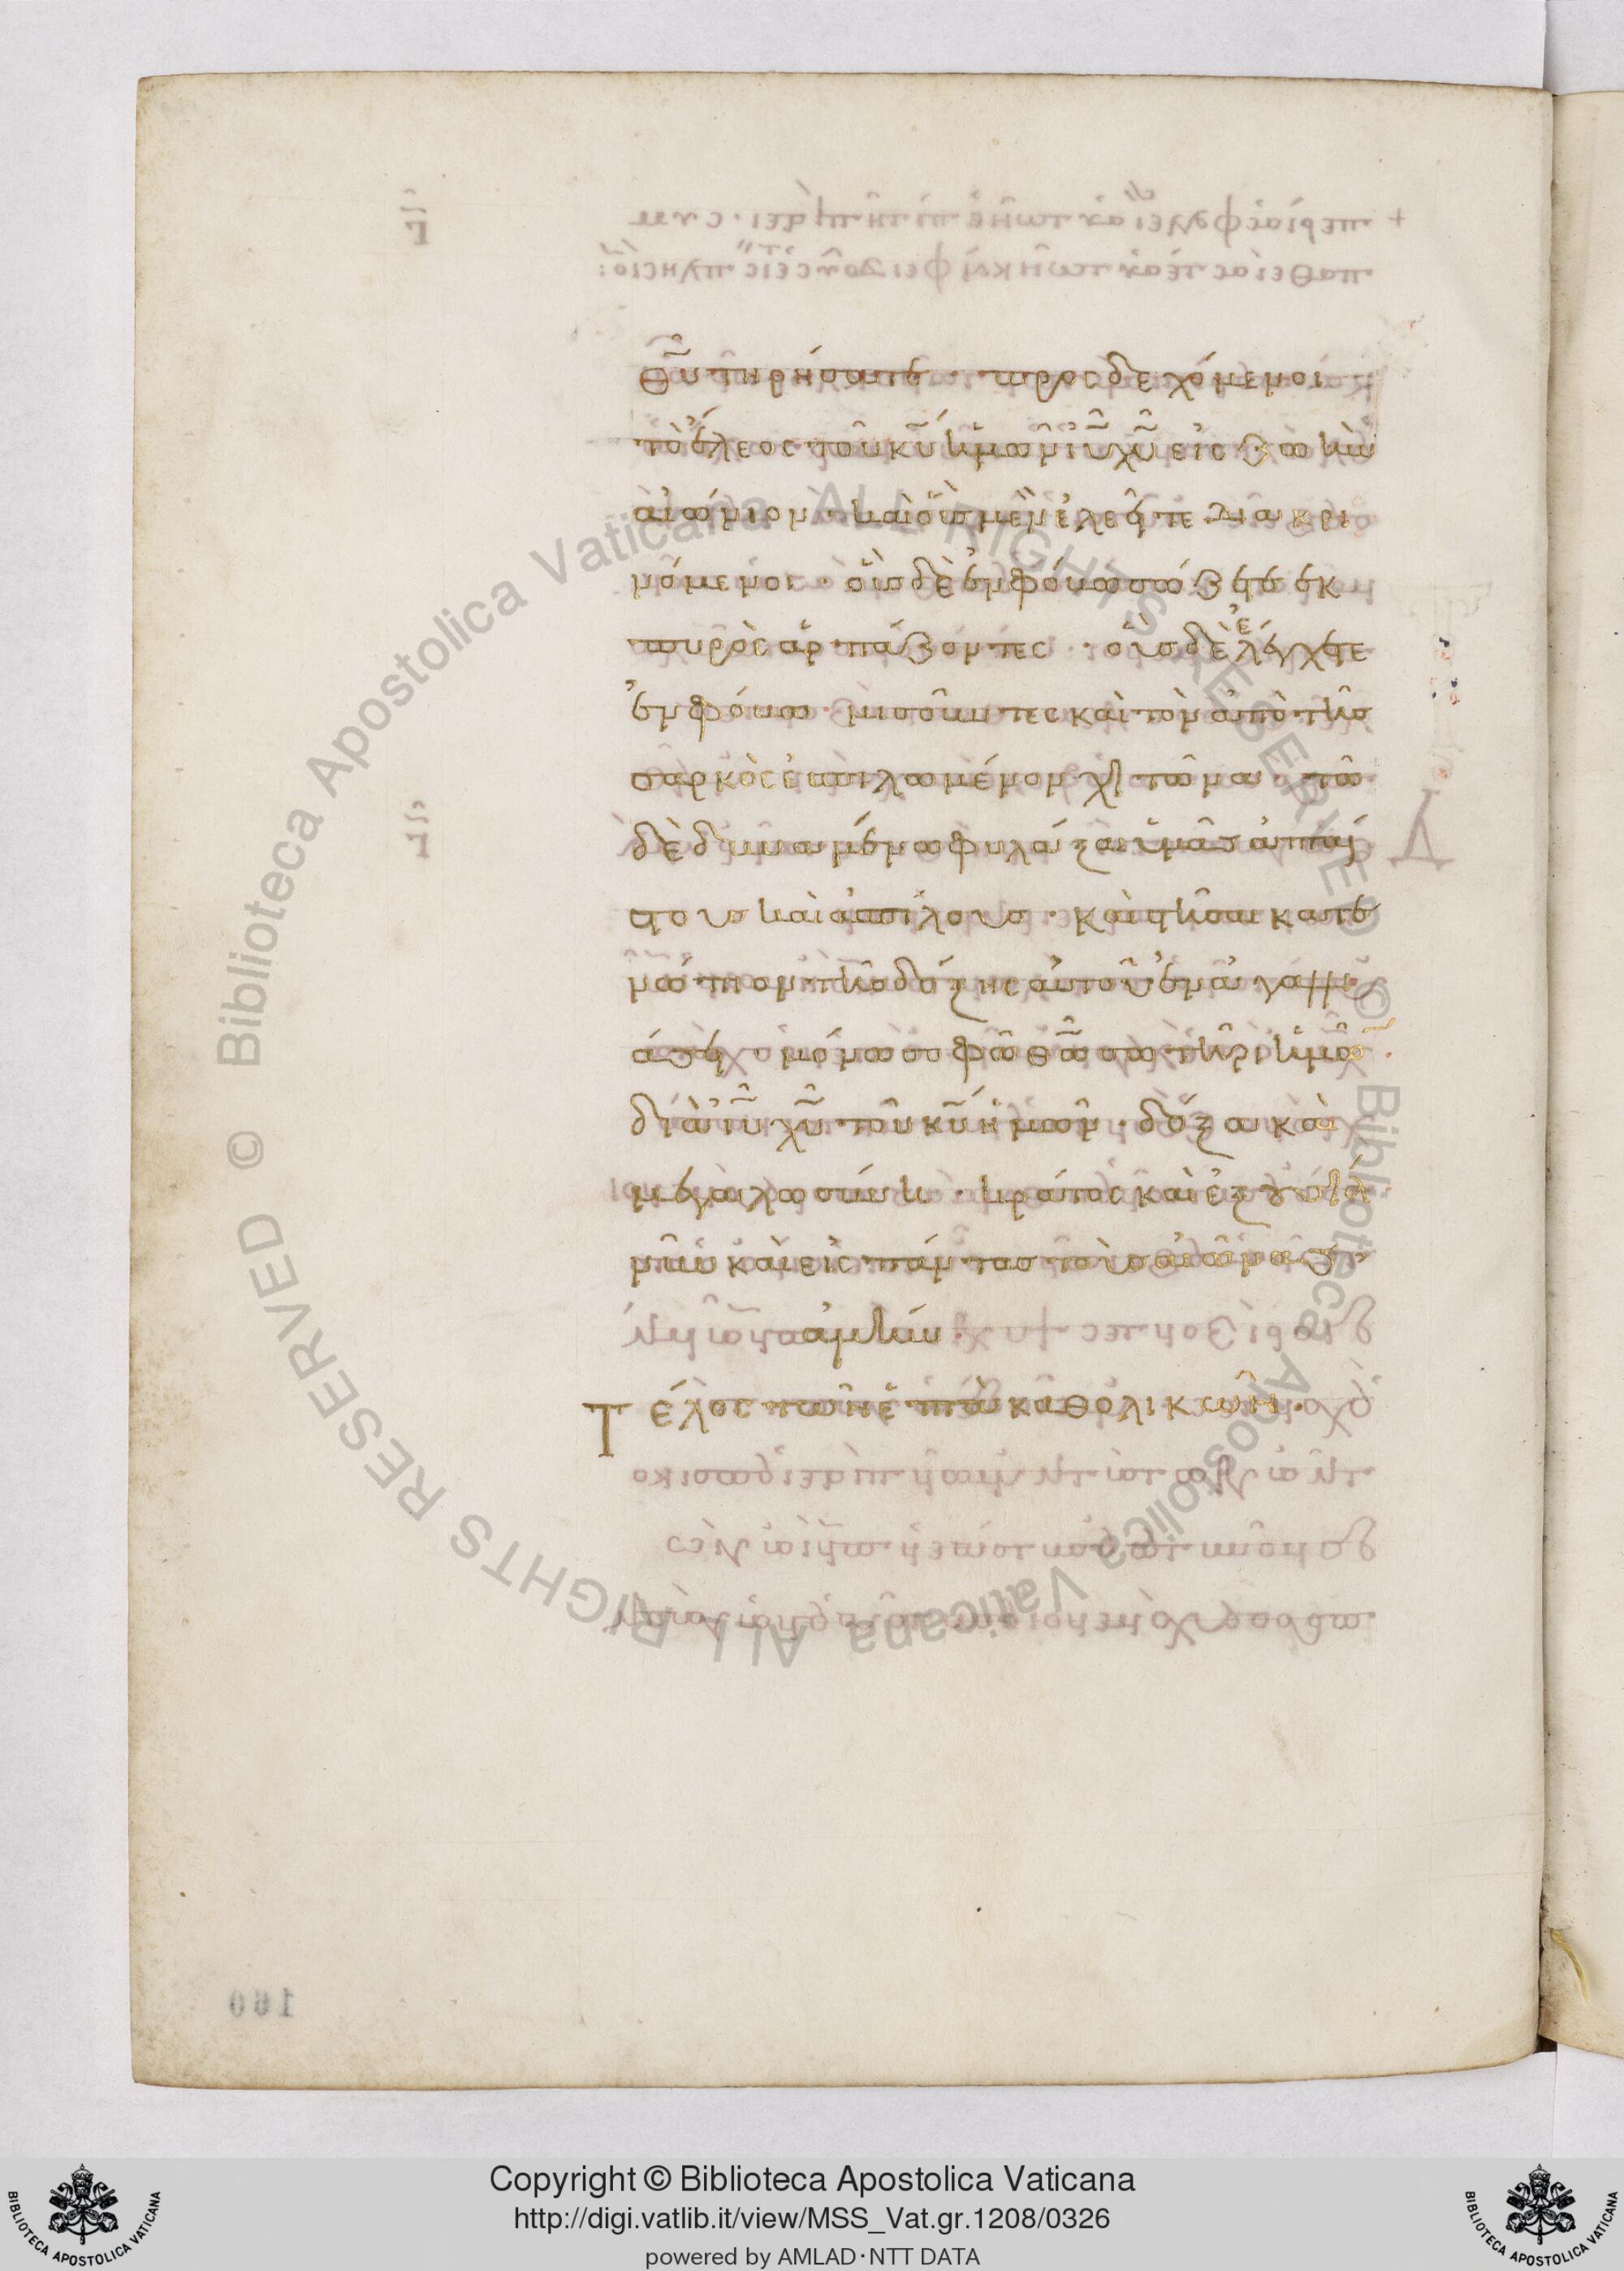 θ̅υ̅ τηρήσατε · προσδεχόμενοι
τὸ ἔλεος τοῦ κ̅υ̅ ἡμῶν ι̅υ̅ χ̅υ̅ εἰς ζωὴν
αἰώνιον · καὶ οὓς μὲν ἐλεεῖτε διακρι
νόμενοι · οὓς δὲ ἐν φόβω σώζετε ἐκ
πυρὸς ἁρπάζοντες · οὓς δὲ ἐλέγχετε
ἐν φόβω · μισοῦντες καὶ τὸν ἀπὸ τῆς
σαρκὸς ἐσπιλωμένον χιτῶνα · τῶ
δὲ δυναμένω φυλάξαι ὑμᾶς ἀπταί
στους καὶ ἀσπίλους · καὶ στῆσαι κατε
νώπιον τῆς δόξης αὐτοῦ ἐν ἀγαλλι
άσει · μόνω σοφῶ θ̅ω̅ σωτῆρι ἡμῶν ·
διὰ ι̅υ̅ χ̅υ̅ τοῦ κ̅υ̅ ἡμῶν · δόξα καὶ
μεγαλωσύνη · κράτος καὶ ἐξουσία
νῦν καὶ εἰς πάντας τοὺς αἰῶνας ·
ἀμήν ·
Τέλος τῶν ἑπτὰ καθολικῶν ·
160
© Biblioteca Apostolica Vaticana ALL RIGHTS RESERVED © Biblioteca Apostolica Vaticana ALL RIGHTS RESERVED
BIBLIOTECA APOSTOLICA VATICANA
Copyright © Biblioteca Apostolica Vaticana
http://digi.vatlib.it/view/MSS_Vat.gr.1208/0326
powered by AMLAD·NTT DATA
BIBLIOTECA APOSTOLICA VATICANA